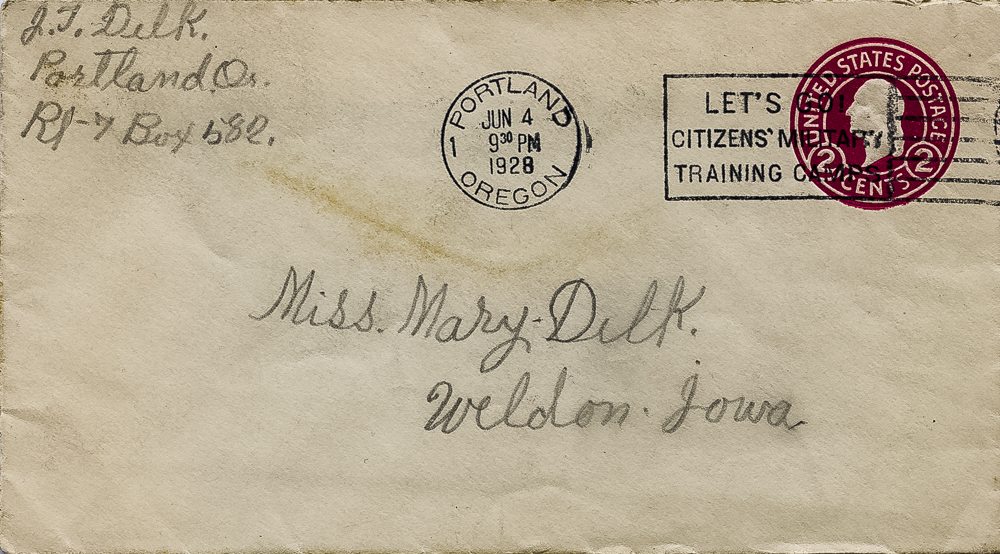 J.T. Delk.
Portland Or.
Rt-7 Box 582.
PORTLAND
JUN 4
9 30 PM
1928
1
OREGON
LET'S GO!
CITIZENS' MILITARY
TRAINING CAMPS
UNITED STATES POSTAGE
2 CENTS 2
Miss. Mary. Delk.
Weldon. Iowa